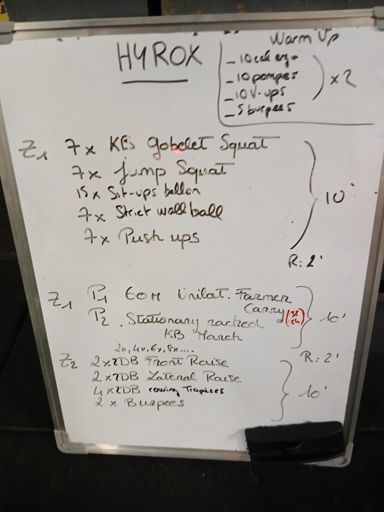 HYROX
Warm Up
_ 10 cal ergo
_ 10 pompes
_ 10 V-ups
_ 5 burpees
x 2
Z1 7x KB gobelet Squat
7x Jump Squat
15x Sit-ups ballon
7x Strict wall ball
7x Push ups
10'
R: 2'
Z1 P1 60m Unilat. Farmer
Carry
P2 . Stationary racked
KB March
10'
2x, 4x, 6x, 8x....
R: 2'
Z2 2x2DB Front Raise
2x2DB Lateral Raise
4x2DB rowing Trapèzes
2 x Burpees
10'